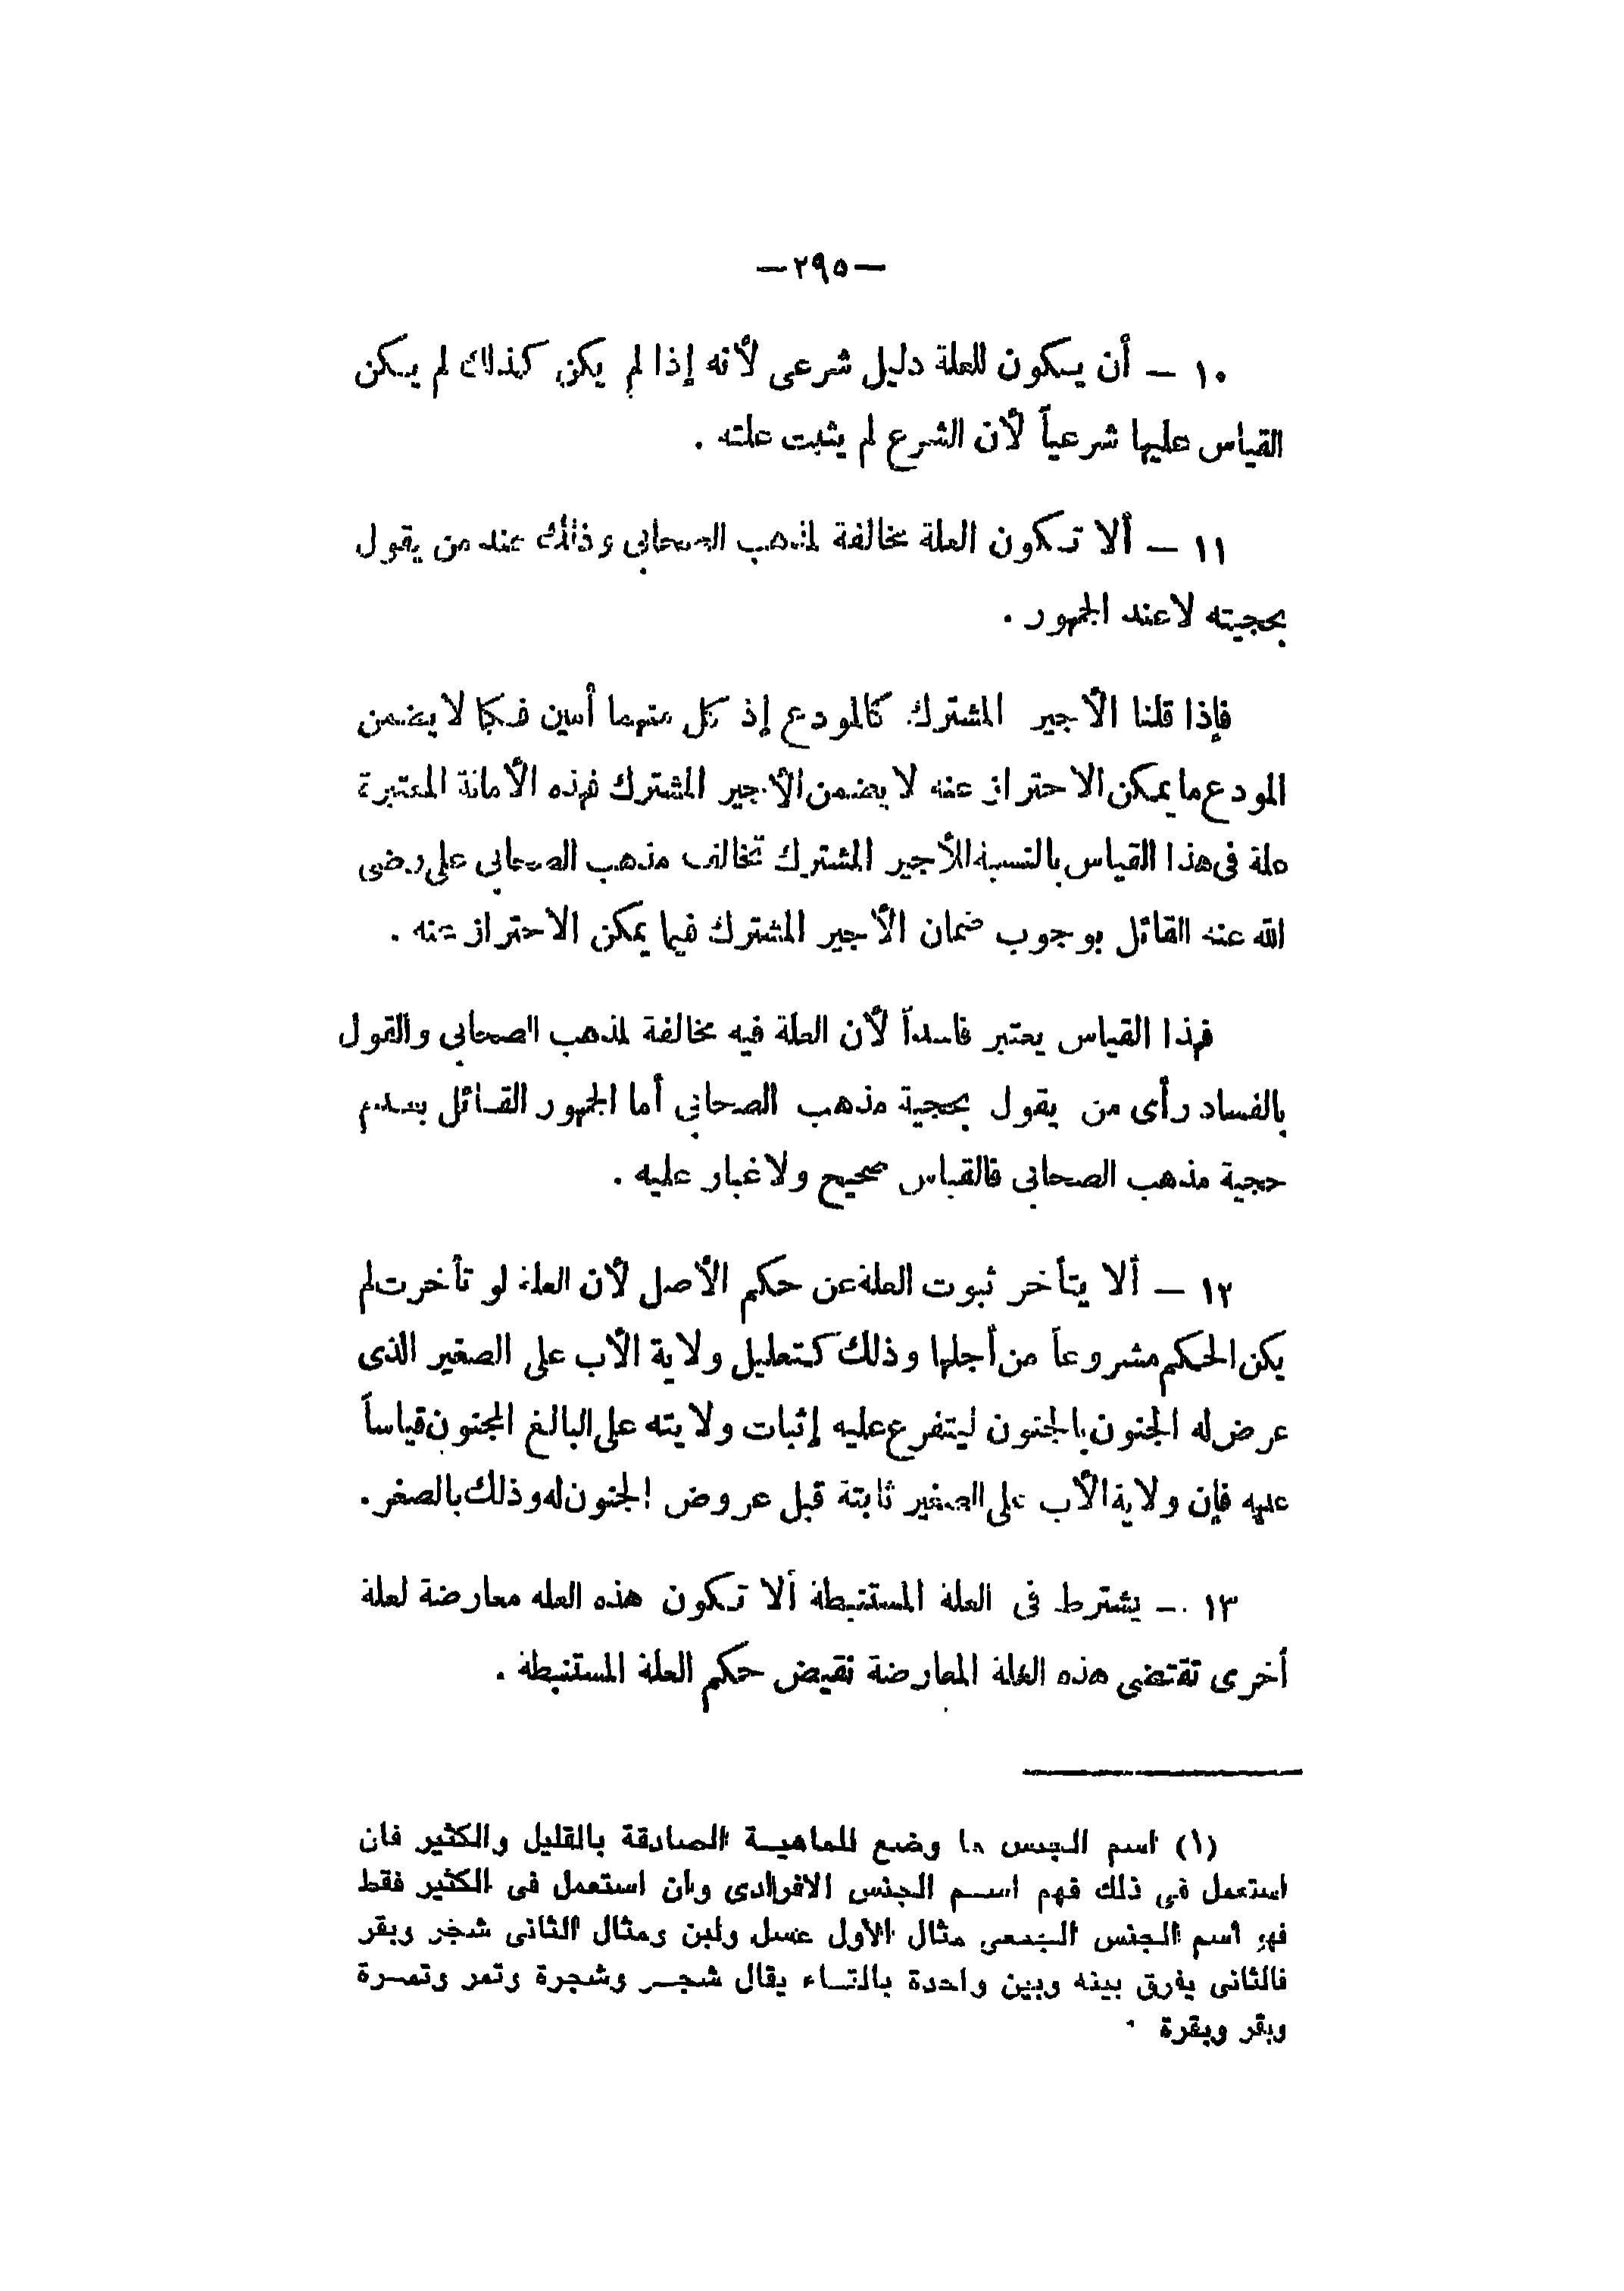 —٢٩٥—
١٠ — أن يكون للعلة دليل شرعى لأنه إذا لم يكن كذلك لم يكن
القياس عليها شرعياً لأن الشرع لم يثبت علته .
١١ — ألا تكون العلة مخالفة لمذهب الصحابى وذلك عند من يقول
بحجيته لا عند الجمهور .
فإذا قلنا الأجير المشترك كالمودع إذ كل منهما أمين فكما لا يضمن
المودع ما يمكن الاحتراز عنه لا يضمن الأجير المشترك فهذه الأمانة المعتبرة
علة فى هذا القياس بالنسبة للأجير المشترك تخالف مذهب الصحابى على رضى
الله عنه القائل بوجوب ضمان الأجير المشترك فيما يمكن الاحتراز عنه .
فهذا القياس يعتبر فاسداً لأن العلة فيه مخالفة لمذهب الصحابى والقول
بالفساد رأى من يقول بحجية مذهب الصحابى أما الجمهور القائل بعدم
حجية مذهب الصحابى فالقياس صحيح ولا غبار عليه .
١٢ — ألا يتأخر ثبوت العلة عن حكم الأصل لأن العلة لو تأخرت لم
يكن الحكم مشروعاً من أجلها وذلك كتعليل ولاية الأب على الصغير الذى
عرض له الجنون بالجنون ليتفرع عليه إثبات ولايته على البالغ المجنون قياساً
عليه فإن ولاية الأب على الصغير ثابتة قبل عروض الجنون له وذلك بالصغر .
١٣ — يشترط فى العلة المستنبطة ألا تكون هذه العله معارضة لعلة
أخرى تقتضى هذه العلة المعارضة نقيض حكم العلة المستنبطة .
(١) اسم الجنس ما وضع للماهية الصادقة بالقليل والكثير فان
استعمل فى ذلك فهم اسم الجنس الافرادى وان استعمل فى الكثير فقط
فهو اسم الجنس الجمعى مثال الأول عسل ولبن ومثال الثانى شجر وبقر
فالثانى يفرق بينه وبين واحدة بالتاء يقال شجر وشجرة وتمر وتمرة
وبقر وبقرة ·